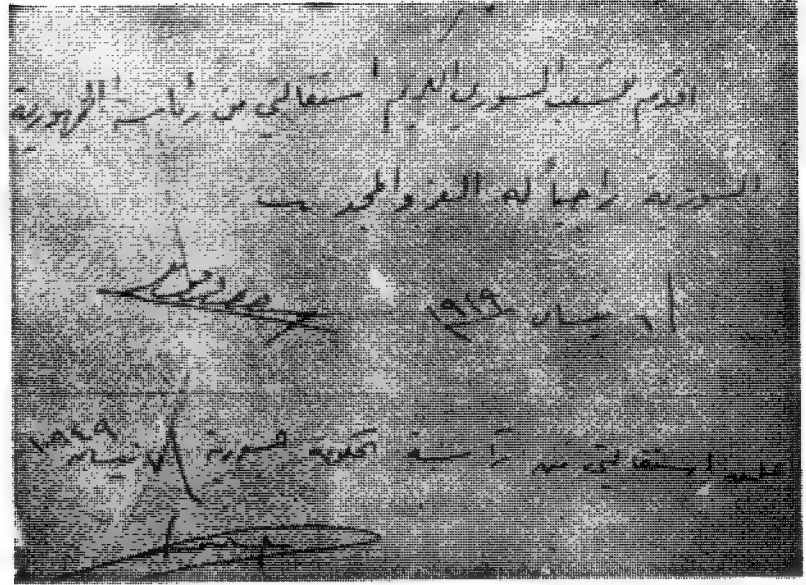 اقدم للشعب السوري الكريم استقالتي من رئاسة الجمهورية
السورية راجياً له العز والمجد
نيسان ١٩٤٩
استقالتي من رآسة الحكومة السورية نيسان ١٩٤٩